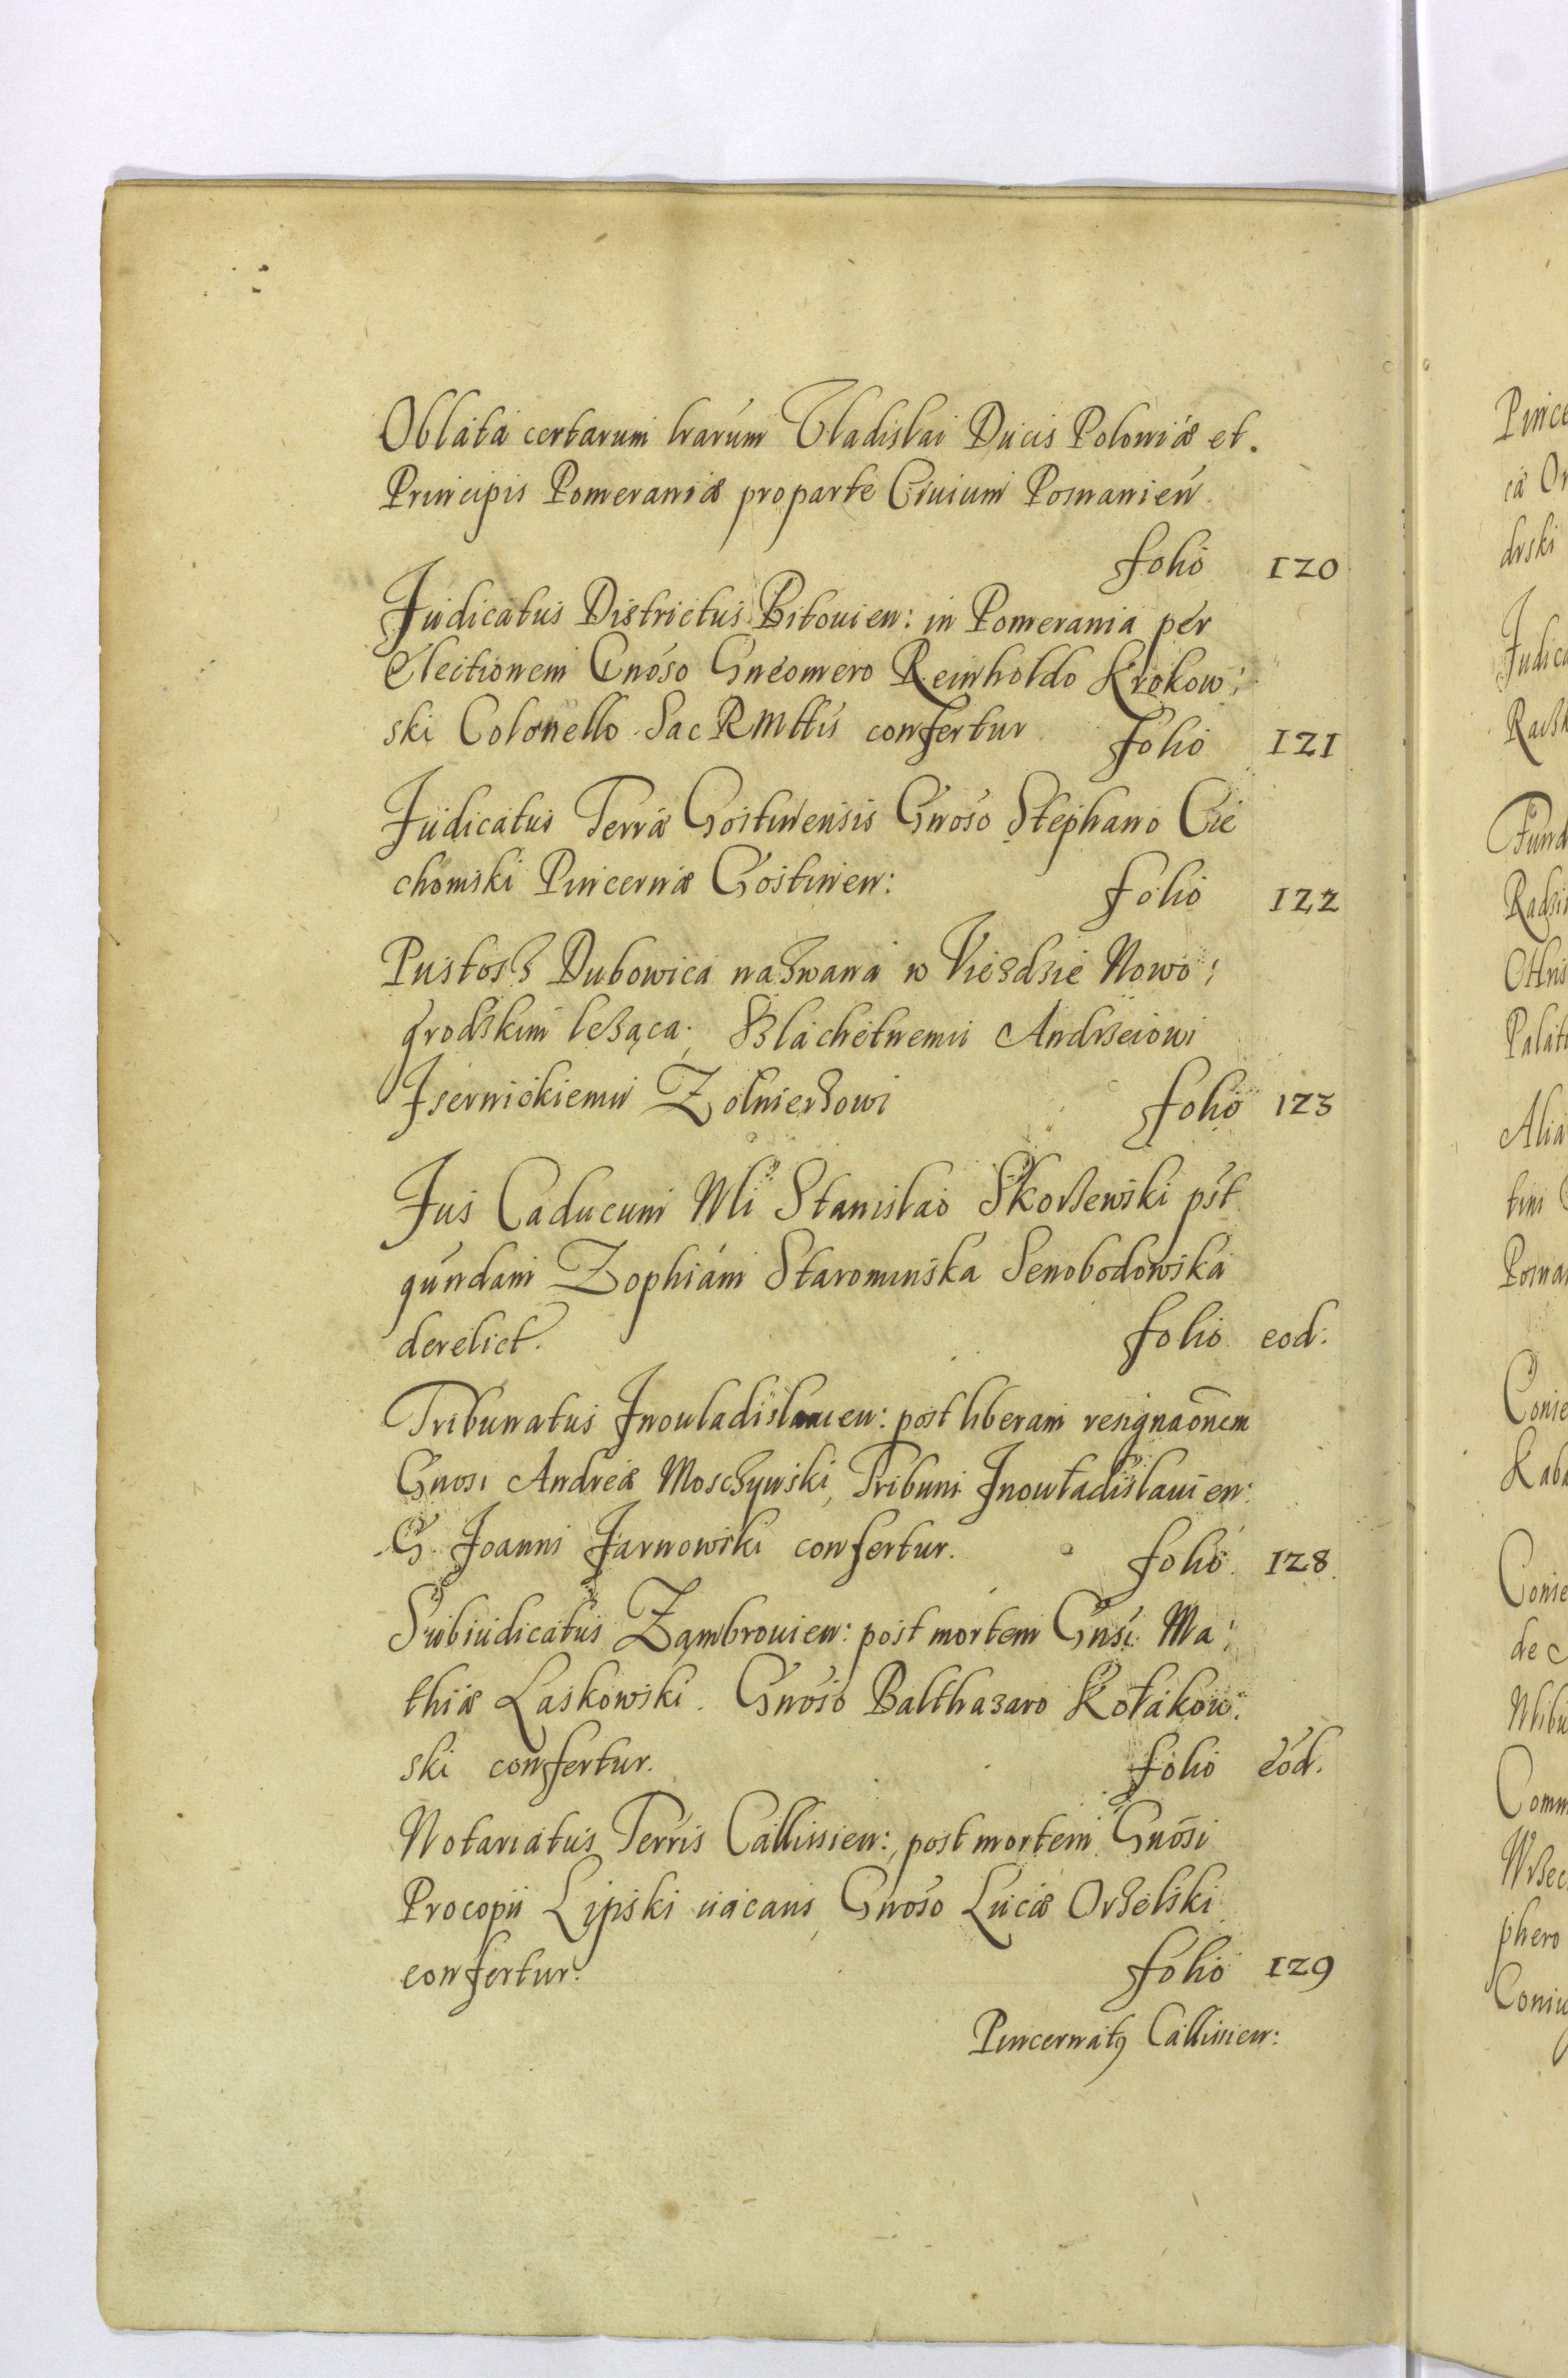 Oblata certarum lrarum Vladislai Ducis Poloniæ et
Principis Pomeraniæ pro parte Ciuium Posnanien
folio 120
Judicatus Districtus Bitouien: in Pomerania per
Electionem Gnoso Gneomero Reinholdo Krokow:
ski Colonello Sac RMttis confertur folio 121
Judicatus Terræ Gostinensis Gnoso Stephano Cie
chomski Pincernæ Gostinen: folio 122
Pustosz Dubowica nazwana w Viezdzie Nowo:
grodzkim leżąca. Szlachetnemu Andrzeiowi
Izernickiemu Zolnierzowi folio 123
Jus Caducum Mli Stanislao Skorzewski pst
qundam Zophiam Starominska Senobodowska
derelict. folio eod.
Tribunatus Inowladislauien: post liberam resignaōnem
Gnosi Andreæ Moszczynski, Tribuni Inowładislauien:
G. Joanni Jarnowski confertur. folio 128
Subiudicatus Zambrouien: post mortem Gnsi Ma:
thiæ Laskowski. Gnoso Balthazaro Kołakow:
ski confertur. folio eod.
Notariatus Terris Callissien: post mortem Gnosi
Procopii Lipski uacans Gnoso Lucæ Orzelski
confertur. folio 129
Pincernatus Callissien: